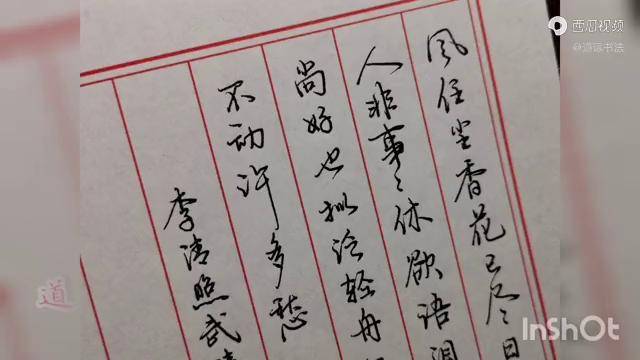 風住尘香花已尽日
人非事〻休欲语泪
尚好也拟泛轻舟
不动许多愁
李清照武
西瓜视频
道
InShot